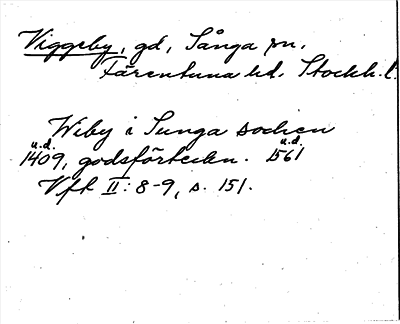 Viggeby, gd, Sånga sn.
Färentuna hd. Stockh. l.
Wiby i Sunga sochen
u.d. u.d.
1409, godsförteckn. 1561
Vfh II: 8-9, s. 151.